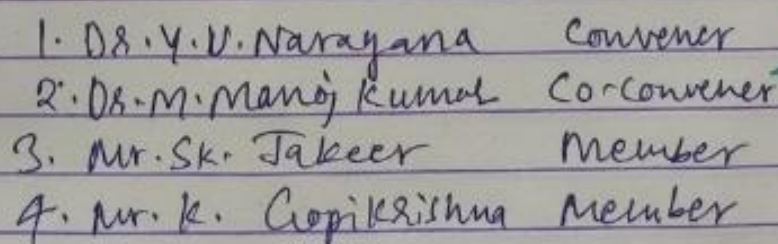 1. Dr. Y. V. Narayana Convener
2. Dr. M. Manoj Kumar Co-Convener
3. Mr. Sk. Jakeer Member
4. Mr. K. Gopikrishna Member